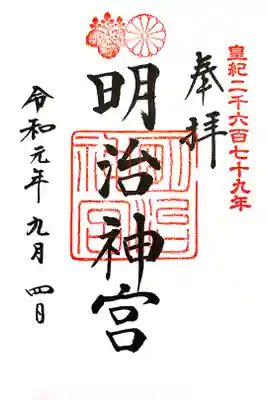 皇紀二千六百七十九年
奉拝
明治神宮
明治神宮
令和元年九月四日